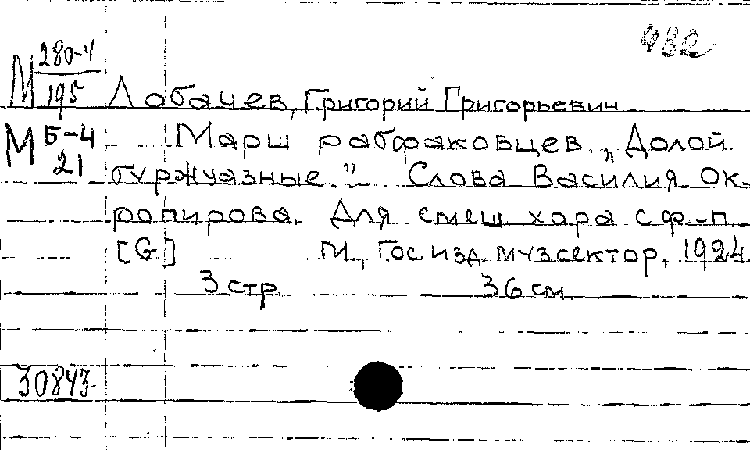 М 280-4
195
Лобачев, Григорий Григорьевич
М Б-4
21
Марш рабфаковцев. „Долой
буржуазные." Слова Василия Ок-
ропирова. Для смеш хора с ф-п
[G] М., Госизд музсектор, 1924
3 стр 36 см
30843